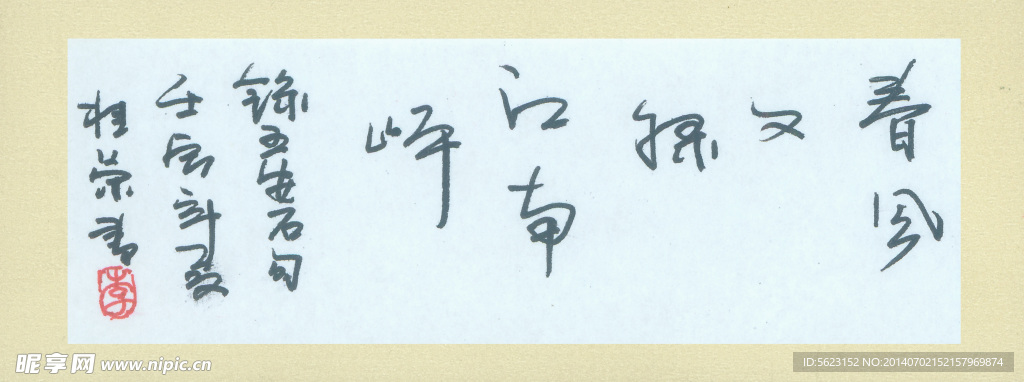 春风
又
绿
江南
岸
錄王安石句
壬辰新夏
桂荣書
李
昵享网 www.nipic.cn
ID:5623152 NO:20140702152157969874